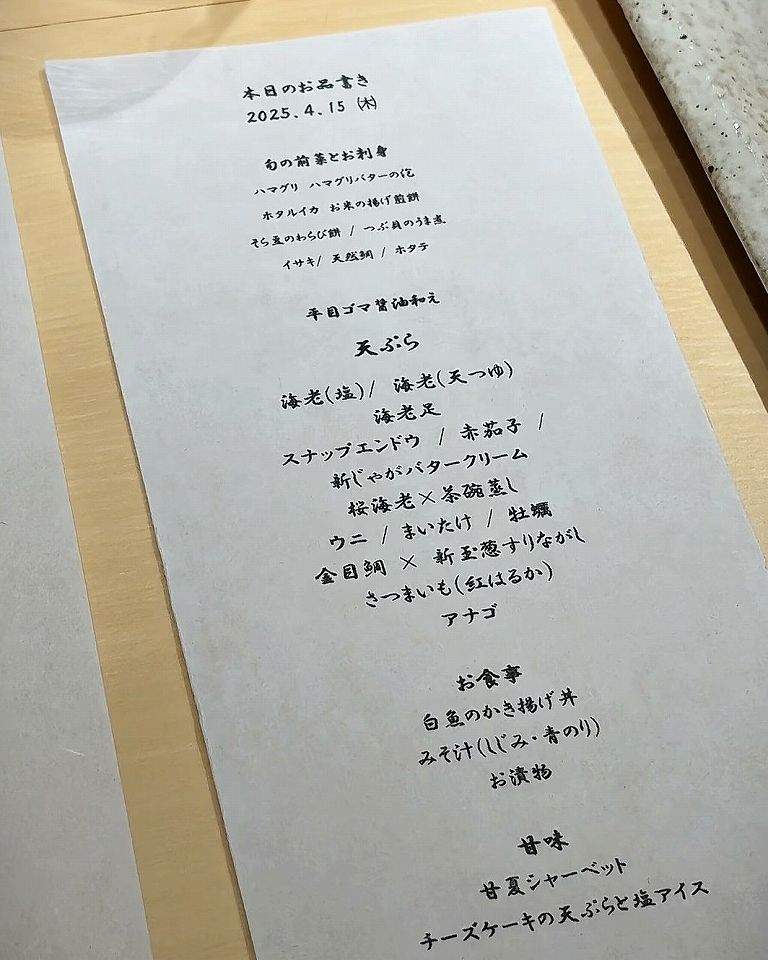 本日のお品書き
2025.4.15 ㈭
旬の前菜とお刺身
ハマグリ ハマグリバターの泡
ホタルイカ お米の揚げ煎餅
そら豆のわらび餅 / つぶ貝のうま煮
イサキ/ 天然鯛 / ホタテ
平目ゴマ醤油和え
天ぷら
海老(塩)/ 海老(天つゆ)
海老足
スナップエンドウ / 赤茄子 /
新じゃがバタークリーム
桜海老×茶碗蒸し
ウニ / まいたけ / 牡蠣
金目鯛 × 新玉葱すりながし
さつまいも(紅はるか)
アナゴ
お食事
白魚のかき揚げ丼
みそ汁(しじみ・青のり)
お漬物
甘味
甘夏シャーベット
チーズケーキの天ぷらと塩アイス